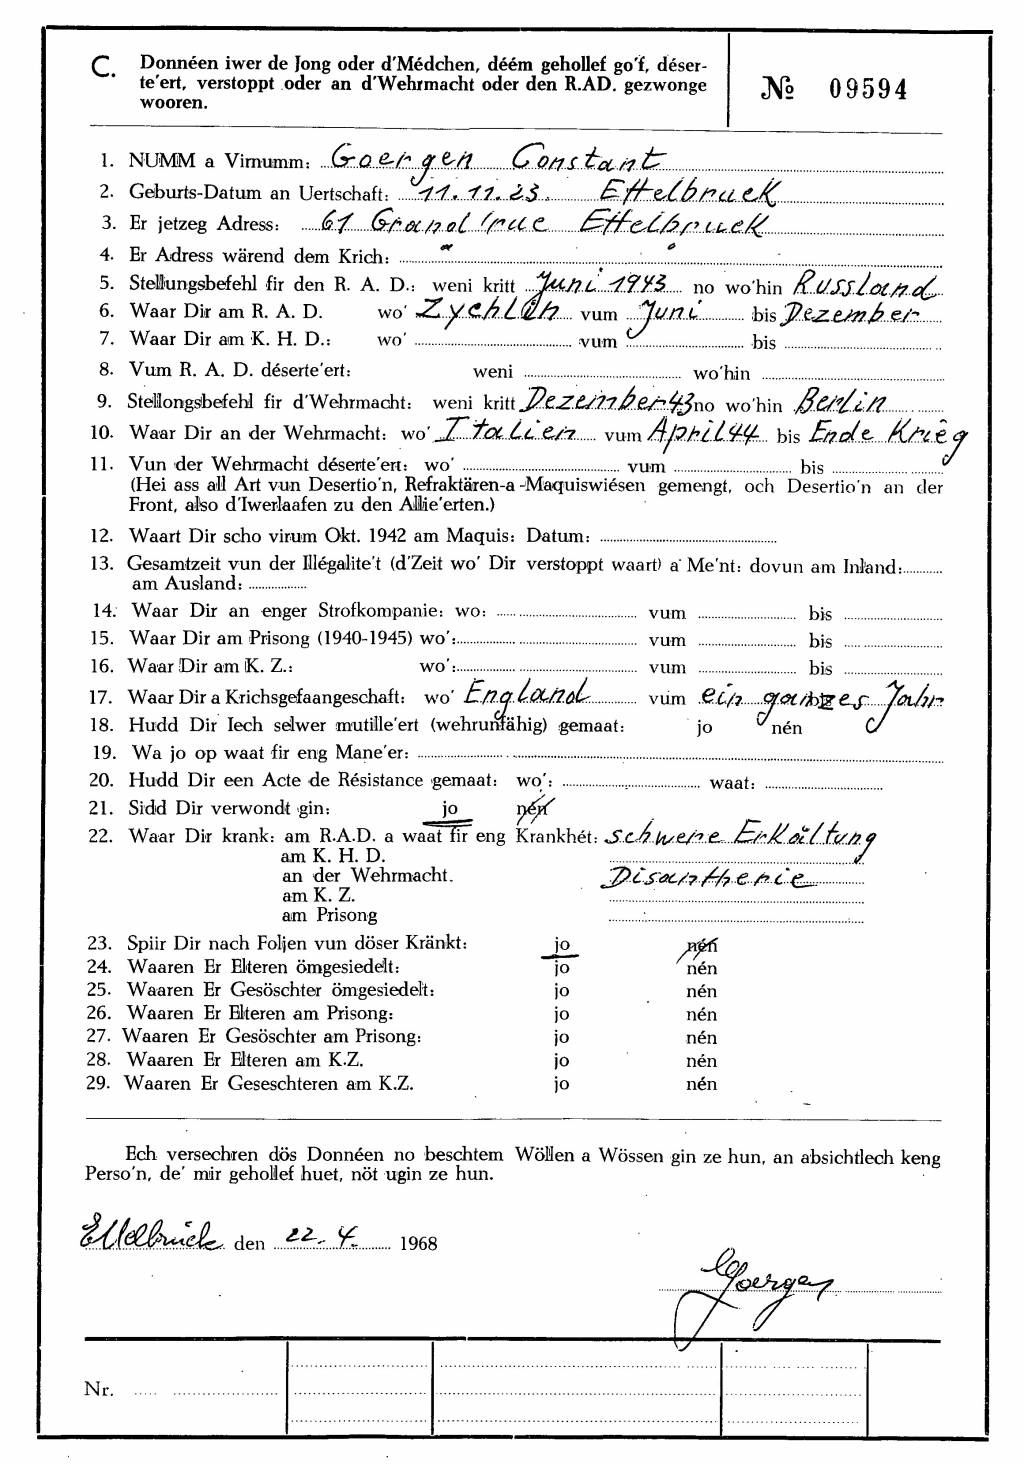 C. Donnéen iwer de Jong oder d'Médchen, déém gehollef go'f, déser-
te'ert, verstoppt oder an d'Wehrmacht oder den R.AD. gezwonge
wooren.
№ 09594
1. NUMM a Virnumm: Goergen Constant
2. Geburts-Datum an Uertschaft: 11.11.23. Ettelbruck
3. Er jetzeg Adress: 61 Grand'rue Ettelbruck
4. Er Adress wärend dem Krich:
5. Stellungsbefehl fir den R. A. D.: weni kritt Juni 1943 no wo'hin Russland
6. Waar Dir am R. A. D. wo' Zychlin vum Juni bis Dezember
7. Waar Dir am K. H. D.: wo' vum bis
8. Vum R. A. D. déserte'ert: weni wo'hin
9. Stellongsbefehl fir d'Wehrmacht: weni kritt Dezember 43 no wo'hin Berlin
10. Waar Dir an der Wehrmacht: wo' Italien vum April 44 bis Ende Krieg
11. Vun der Wehrmacht déserte'ert: wo' vum bis
(Hei ass all Art vun Desertio'n, Refraktären-a-Maquiswiésen gemengt, och Desertio'n an der
Front, also d'Iwerlaafen zu den Allie'erten.)
12. Waart Dir scho virum Okt. 1942 am Maquis: Datum:
13. Gesamtzeit vun der Illégalite't (d'Zeit wo' Dir verstoppt waart) a' Me'nt: dovun am Inland:
am Ausland:
14. Waar Dir an enger Strofkompanie: wo: vum bis
15. Waar Dir am Prisong (1940-1945) wo': vum bis
16. Waar Dir am K. Z.: wo': vum bis
17. Waar Dir a Krichsgefaangeschaft: wo' England vum ein ganzes Jahr bis
18. Hudd Dir Iech selwer mutille'ert (wehrunfähig) gemaat: jo nén
19. Wa jo op waat fir eng Mane'er:
20. Hudd Dir een Acte de Résistance gemaat: wo': waat:
21. Sidd Dir verwondt gin: jo nén
22. Waar Dir krank: am R.A.D. a waat fir eng Krankhét: schwere Erkältung
am K. H. D.
an der Wehrmacht. Disantherie
am K. Z.
am Prisong
23. Spiir Dir nach Foljen vun döser Kränkt: jo nén
24. Waaren Er Elteren ömgesiedelt: jo nén
25. Waaren Er Gesöschter ömgesiedelt: jo nén
26. Waaren Er Elteren am Prisong: jo nén
27. Waaren Er Gesöschter am Prisong: jo nén
28. Waaren Er Elteren am K.Z. jo nén
29. Waaren Er Geseschteren am K.Z. jo nén
Ech versechren dös Donnéen no beschtem Wöllen a Wössen gin ze hun, an absichtlech keng
Perso'n, de' mir gehollef huet, nöt ugin ze hun.
Ettelbrück den 22. 4. 1968
Goergen
Nr.